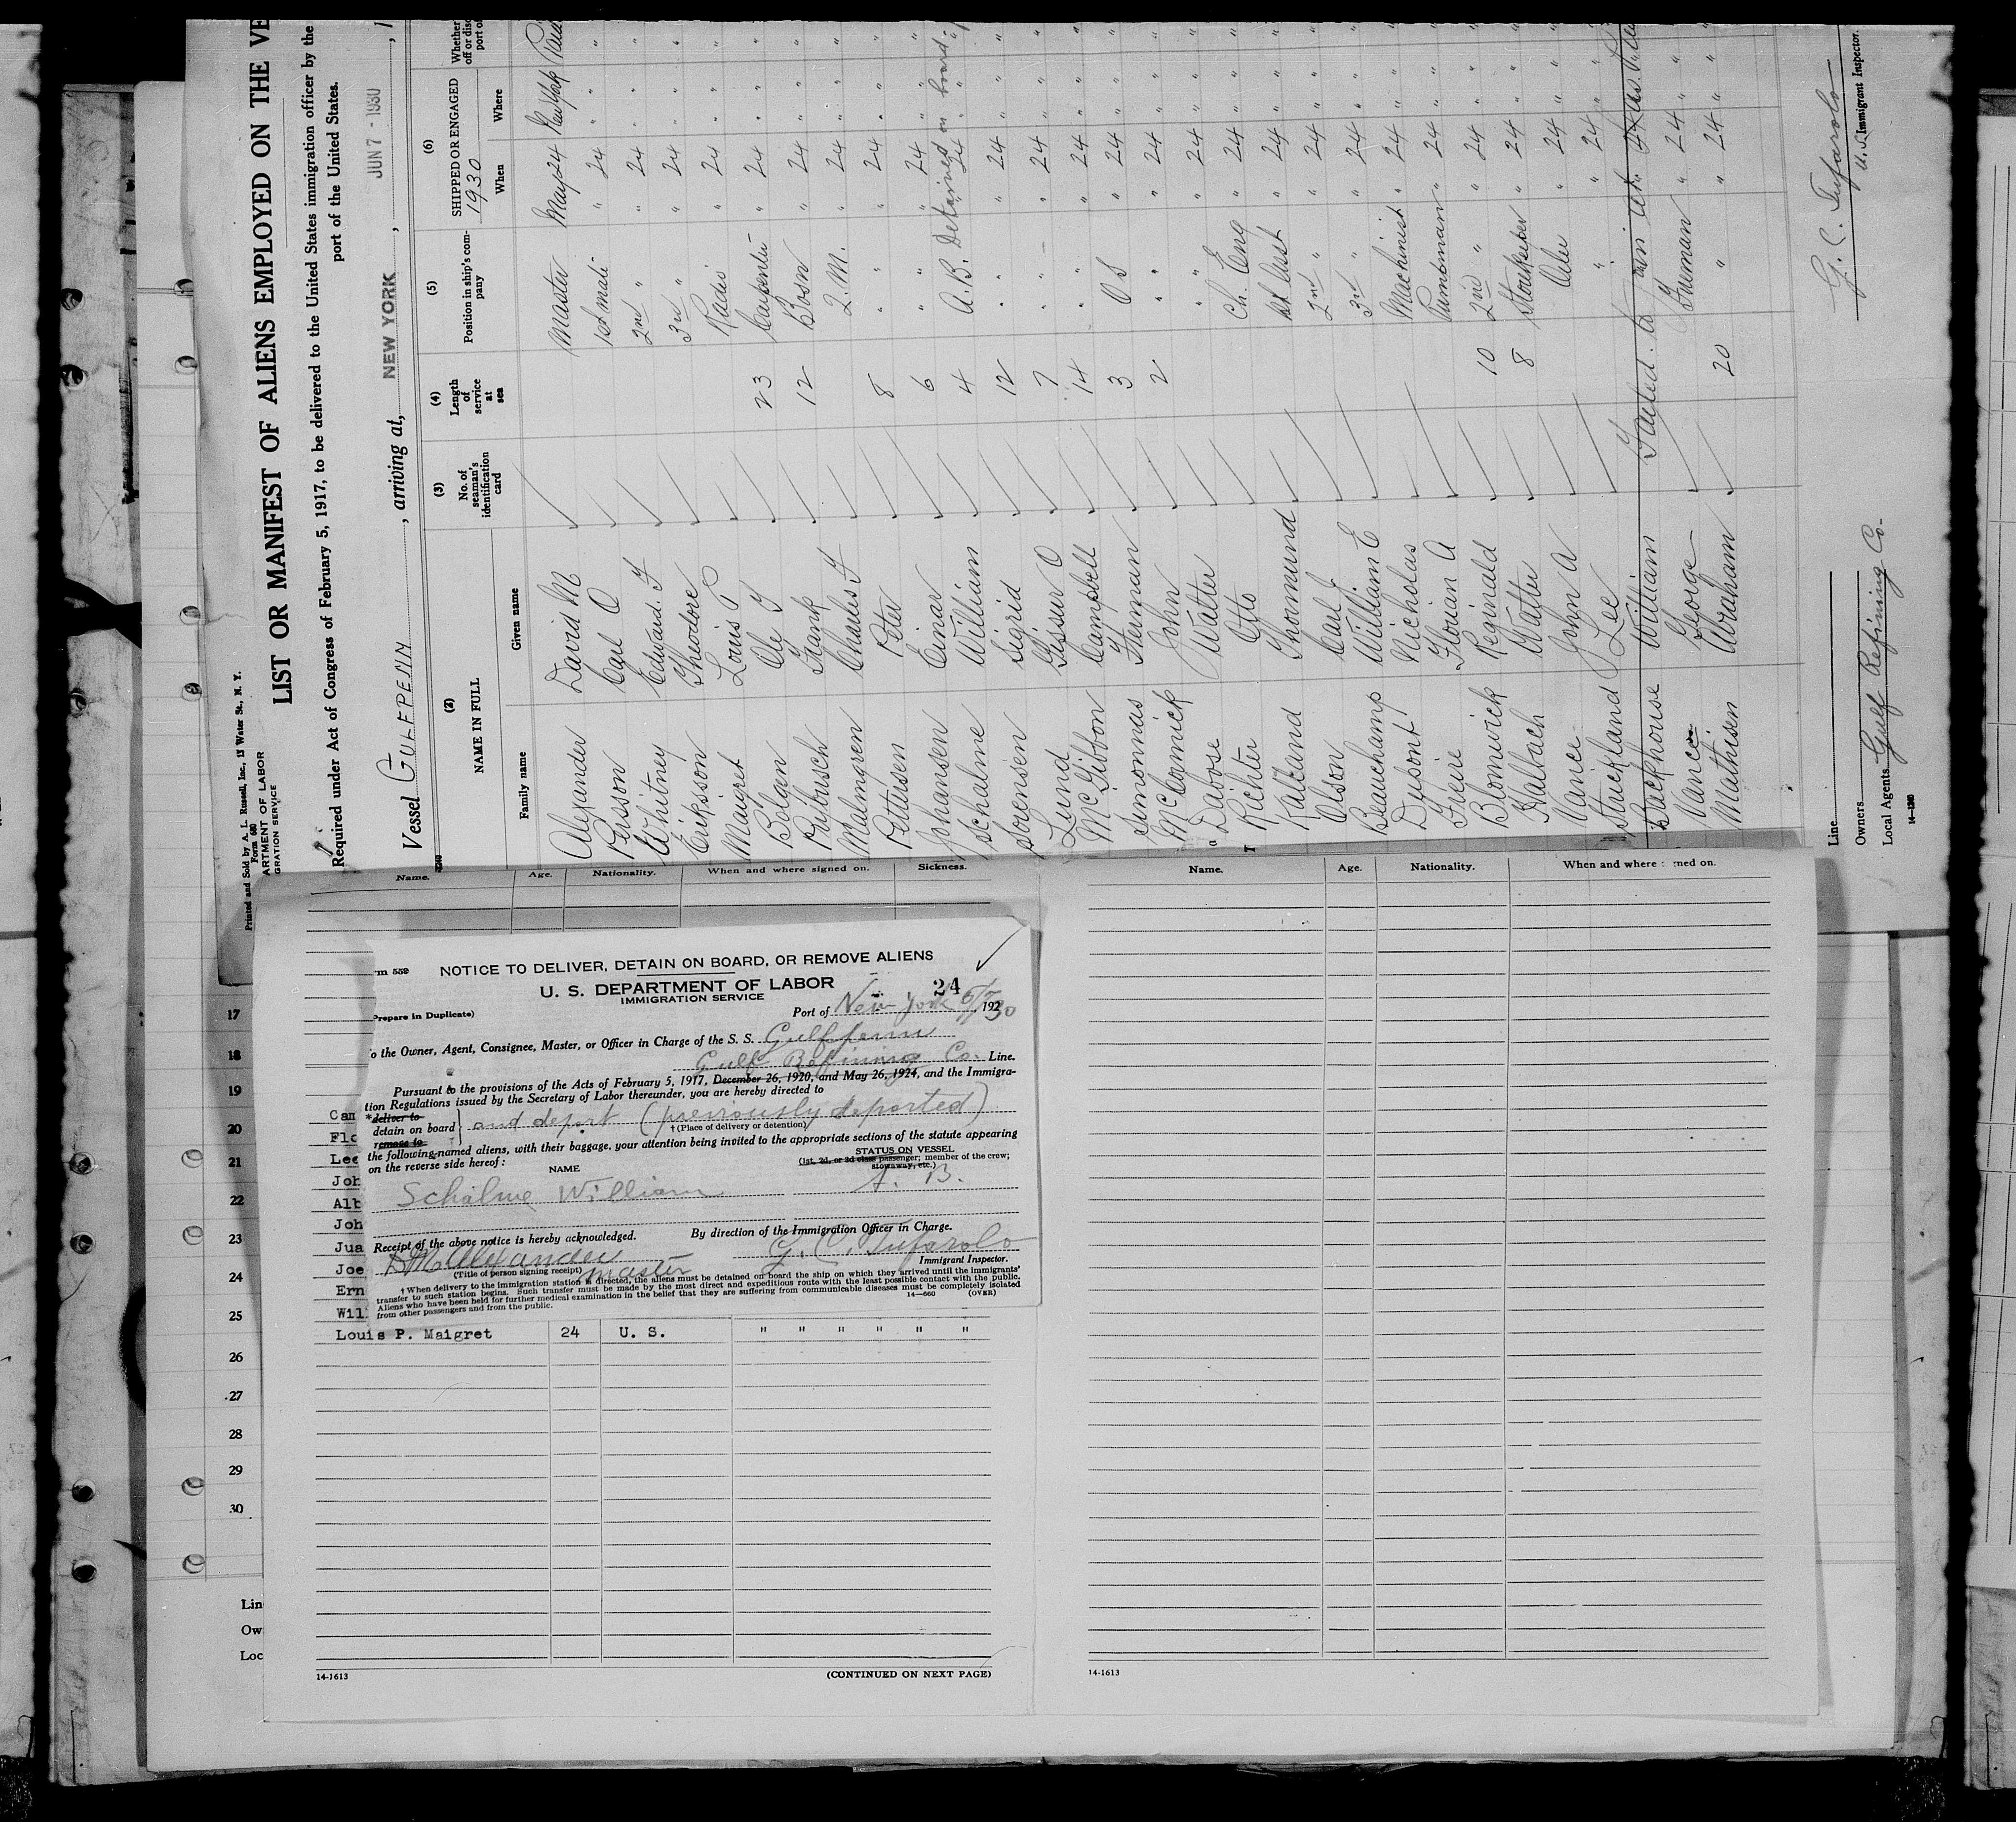 Printed and Sold by A. L. Russell, Inc., 13 Water St., N. Y.
Form 680
ARTMENT OF LABOR
GRATION SERVICE
LIST OR MANIFEST OF ALIENS EMPLOYED ON THE VE
Required under Act of Congress of February 5, 1917, to be delivered to the United States immigration officer by the
port of the United States.
Vessel GULFPENN, arriving at, NEW YORK, JUN 7 - 1930, 1
(2) (3) (4) (5) (6)
NAME IN FULL No. of seaman's identification card Length of service at sea Position in ship's company SHIPPED OR ENGAGED 1930 Whether
Family name Given name When Where
Alexander David M Master May 24
Persson Carl O 1st mate " 24 "
Whitney Edward F 2nd " " 24 "
Erikson Theodore 3rd " " 24 "
Maigret Louis P Radio " 24 "
Bolgen Ole G 23 Carpenter " 24 "
Frank 12 Bosn " 24 "
Malmgren Charles F Q.M. " 24 "
Pettersen Peter 8 " " 24 "
Johansen Einar 6 " " 24 "
Schalme William 4 A.B. Detained on board " 24 "
Sorensen Sigrid 12 " " 24 "
Lund Gissur O 7 " " 24 "
McGibbon Campbell 14 " " 24 "
Simonnas Herman 3 O S " 24 "
McCormick John 2 " " 24 "
Dabose Walter " " 24 "
Richter Otto Ch. Eng " 24 "
Kaldand Thormund 1st Asst " 24 "
Olson Carl J. 2nd " " 24 "
Beauchamp William E 3rd " " 24 "
Dupont Nicholas Machinist " 24 "
Freire Florian A Pumpman " 24 "
Blomwick Reginald 10 2nd " " 24 "
Halbach Walter 8 Storekeeper " 24 "
Vance John A Oiler " 24 "
Stuckland Lee " " 24 "
Backhouse William Failed to join
Vance George Fireman " 24 "
Mathisen Abraham 20 " " 24 "
G. C. Tufarolo
U. S. Immigrant Inspector.
Line
Owners
Local Agents Gulf Refining Co.
14—1240
Name. Age. Nationality. When and where signed on. Sickness.
Name. Age. Nationality. When and where signed on.
rm 559 NOTICE TO DELIVER, DETAIN ON BOARD, OR REMOVE ALIENS
U. S. DEPARTMENT OF LABOR 24
IMMIGRATION SERVICE
Prepare in Duplicate) Port of New York 6/7/30, 192
o the Owner, Agent, Consignee, Master, or Officer in Charge of the S. S. Gulfpenn
Gulf Refining Co. Line.
Pursuant to the provisions of the Acts of February 5, 1917, December 26, 1920, and May 26, 1924, and the Immigra-
tion Regulations issued by the Secretary of Labor thereunder, you are hereby directed to
*deliver to
detain on board } and deport (previously deported)
remove to † (Place of delivery or detention)
the following-named aliens, with their baggage, your attention being invited to the appropriate sections of the statute appearing
on the reverse side hereof:
NAME
STATUS ON VESSEL
(1st, 2d, or 3d class passenger; member of the crew; stowaway, etc.)
Schalme William A. B.
Receipt of the above notice is hereby acknowledged. By direction of the Immigration Officer in Charge.
D M Alexander G. C. Tufarolo
(Title of person signing receipt) master Immigrant Inspector.
† When delivery to the immigration station is directed, the aliens must be detained on board the ship on which they arrived until the immigrants'
transfer to such station begins. Such transfer must be made by the most direct and expeditious route with the least possible contact with the public.
Aliens who have been held for further medical examination in the belief that they are suffering from communicable diseases must be completely isolated
from other passengers and from the public. 14—660 (OVER)
17
18
19
Cam
20
Flo
Lee
21
Joh
22
Alb
Joh
23
Jua
Joe
24
Ern
Wil
25
Louis P. Maigret 24 U. S. " " " " " "
26
27
28
29
30
Lin
Ow
Loc
14-1613 (CONTINUED ON NEXT PAGE)
14-1613